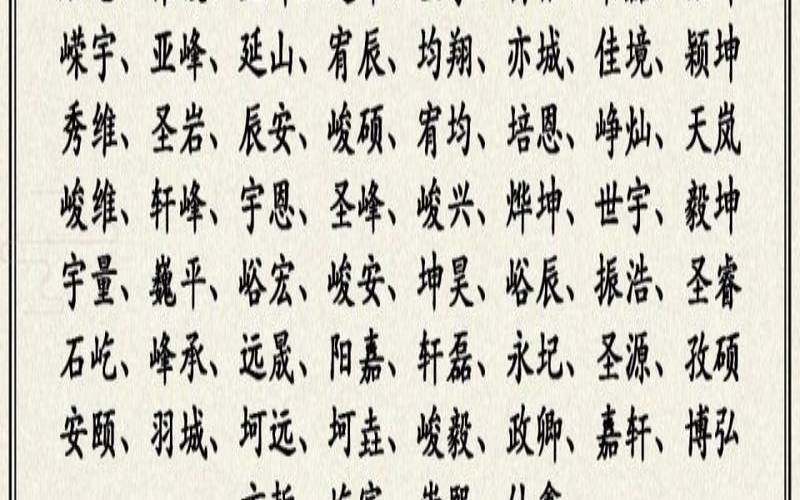 嵘宇、亚峰、延山、宥辰、均翔、亦城、佳境、颖坤
秀维、圣岩、辰安、峻硕、宥均、培恩、峥灿、天岚
峻维、轩峰、宇恩、圣峰、峻兴、烨坤、世宇、毅坤
宇量、巍平、峪宏、峻安、坤昊、峪辰、振浩、圣睿
石屹、峰承、远晟、阳嘉、轩磊、永圮、圣源、孜硕
安颐、羽城、坷远、坷垚、峻毅、政卿、嘉轩、博弘